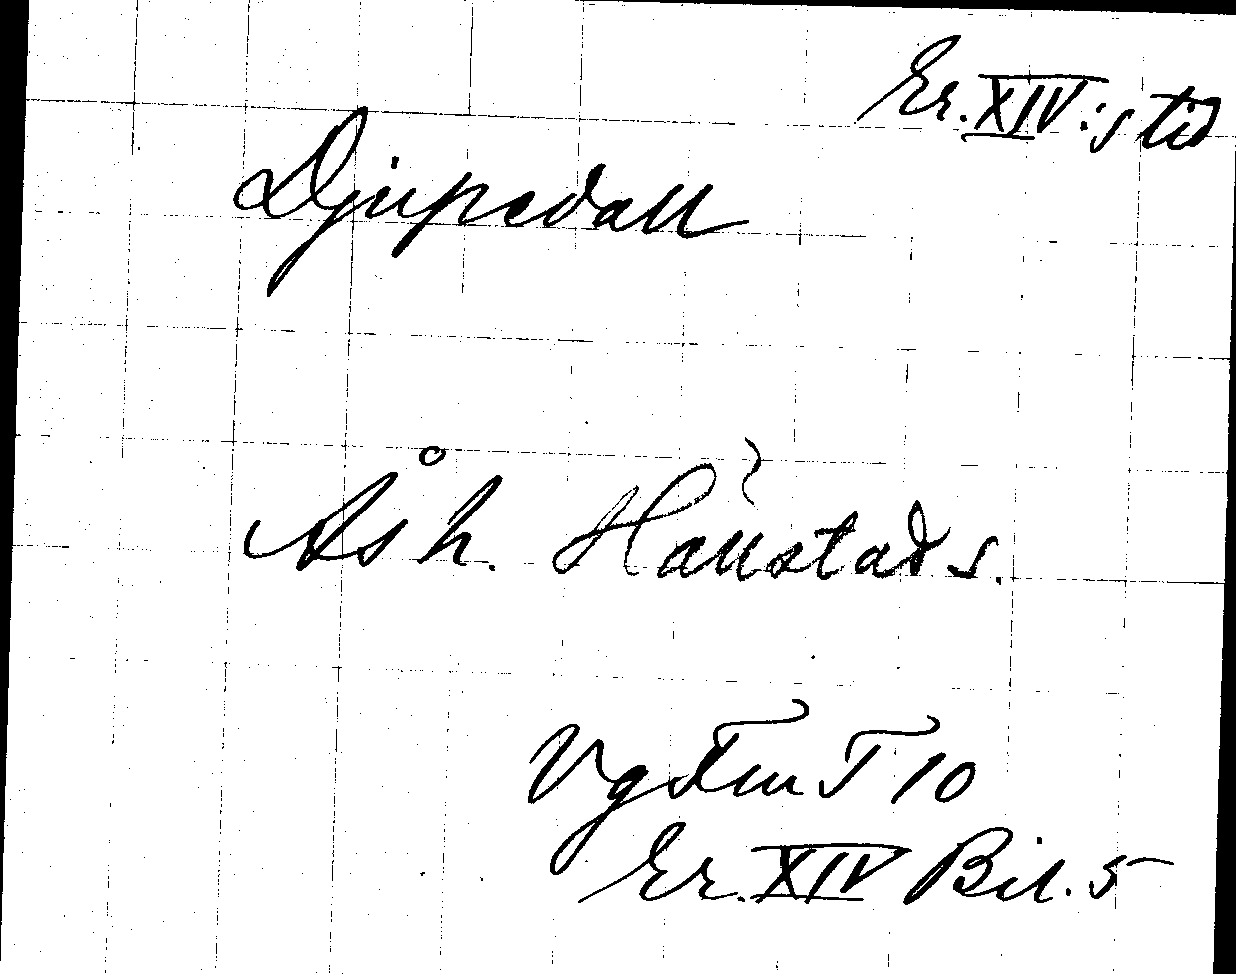 Er. XIV:s tid
Djupedall
Ås h. Hällstads s.
Vg Fm T 10
Er. XIV Bil. 5